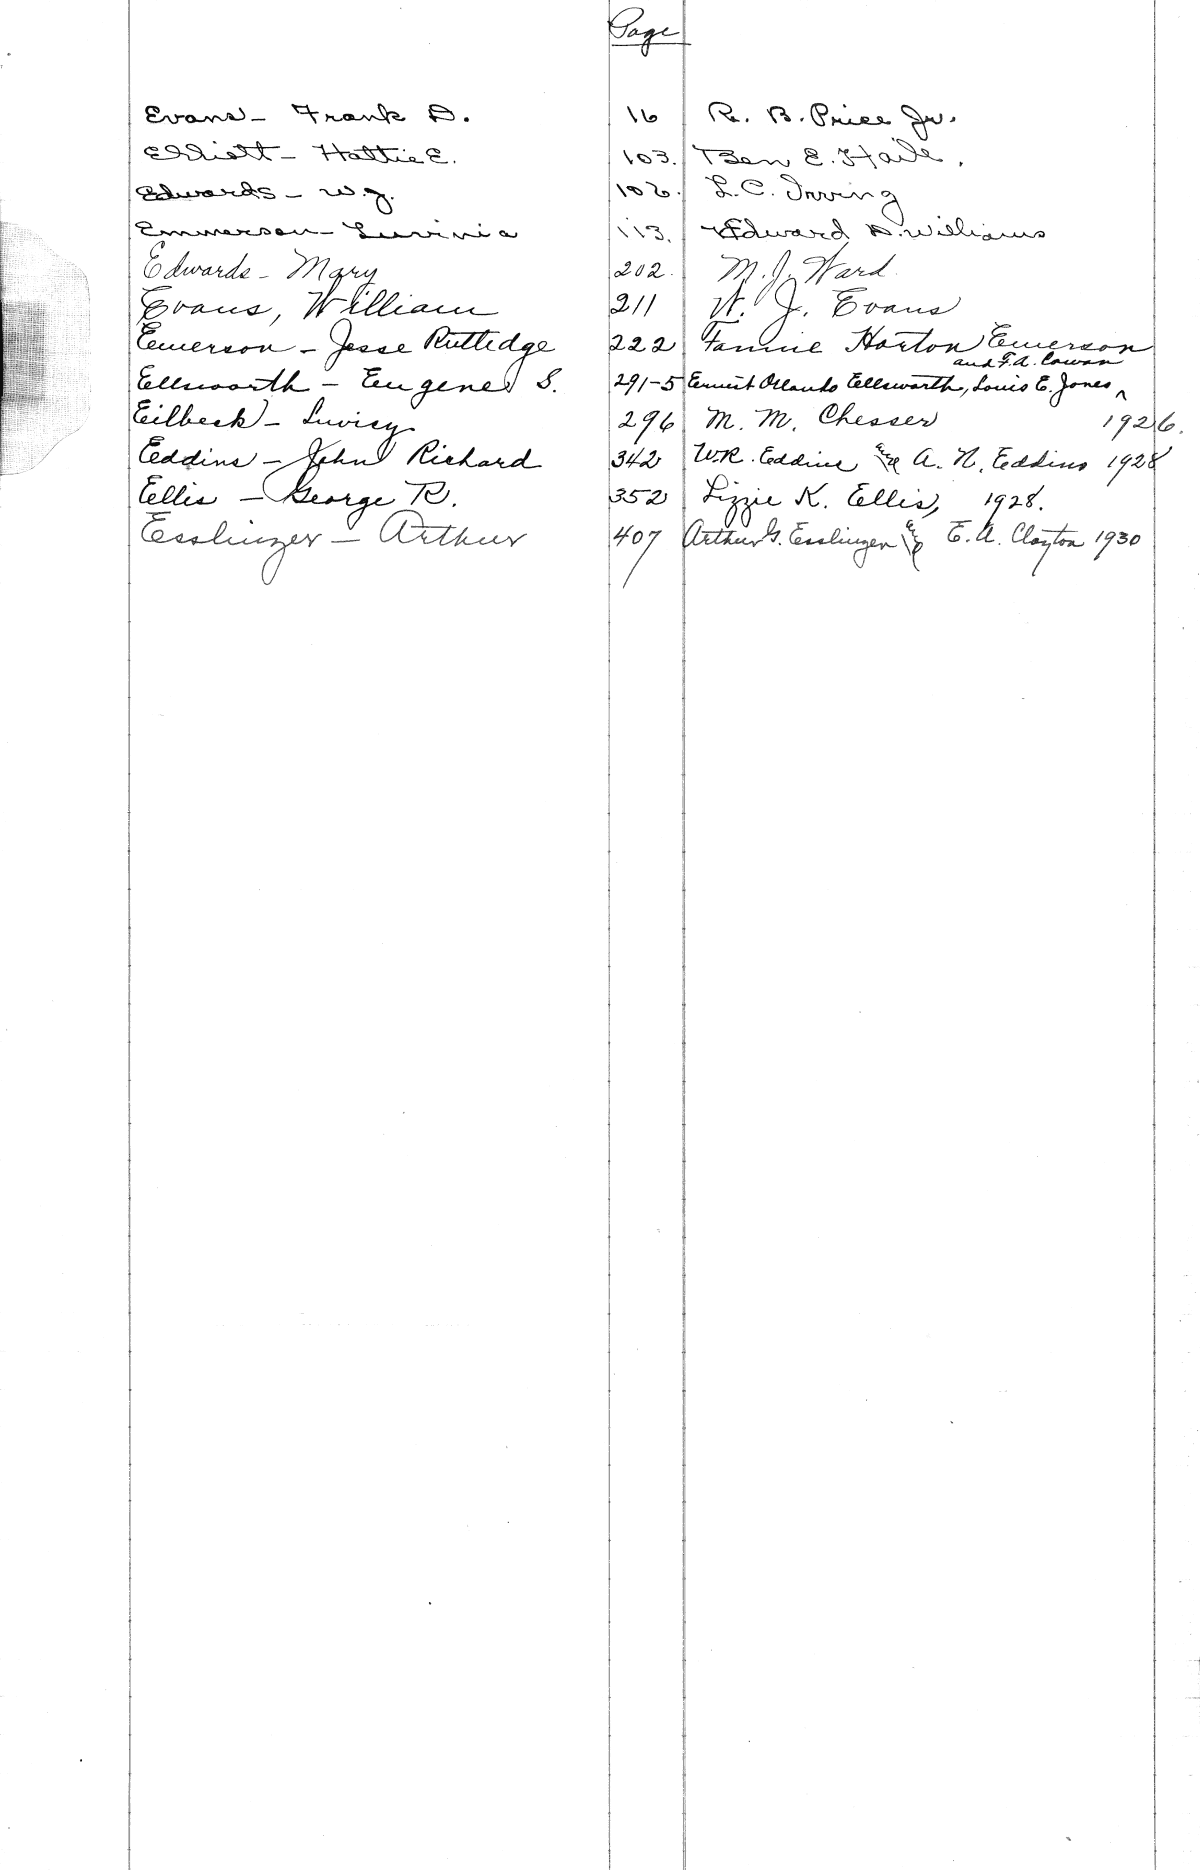 Page
Evans - Frank D. 16 R. B. Price Jr.
Elliott - Hattie E. 103. Ben E. Haile.
Edwards - W.J. 106. L.C. Irving
Emmerson - Luvinia 113. Edward D. Williams
Edwards - Mary 202. M. J. Ward
Evans, William 211 W. J. Evans
Emerson - Jesse Rutledge 222 Fannie Horton Emerson
and F.A. Cowan
Ellsworth - Eugene S. 291-5 Ernest Orlando Ellsworth, Louis E. Jones ^
Eilbeck - Luvicy 296 M. M. Chesser 1926.
Eddins - John Richard 342 W.R. Eddins and A. N. Eddins 1928
Ellis - George R. 352 Lizzie K. Ellis, 1928.
Esslinger - Arthur 407 Arthur G. Esslinger and E. A. Clayton 1930